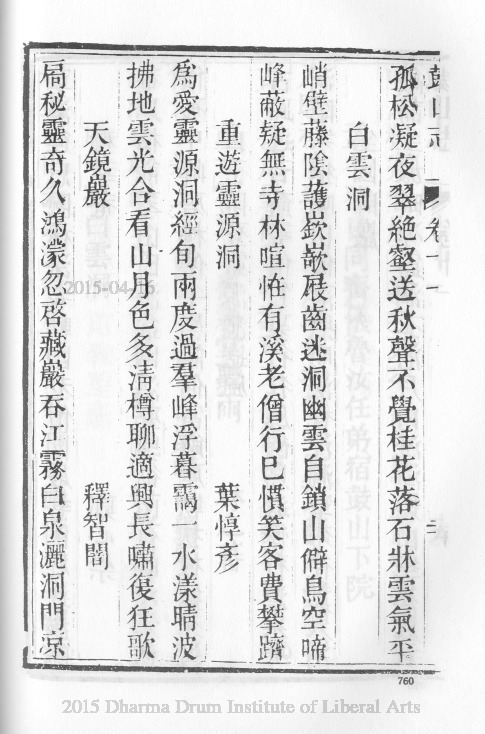 鼓山志 卷十一
孤松凝夜翠絶壑送秋聲不覺桂花落石牀雲氣平
白雲洞
峭壁藤陰護嶔㟢屐齒迷洞幽雲自鎖山僻鳥空啼
峰蔽疑無寺林喧恠有溪老僧行巳慣笑客費攀躋
重遊靈源洞 葉惇彥
爲愛靈源洞經旬雨度過羣峰浮暮靄一水漾晴波
拂地雲光合看山月色多淸樽聊適興長嘯復狂歌
天鏡巖 釋智闇
扃秘靈奇久鴻濛忽啓藏巖吞江霧白泉灑洞門凉
2015-04-16
760
2015 Dharma Drum Institute of Liberal Arts